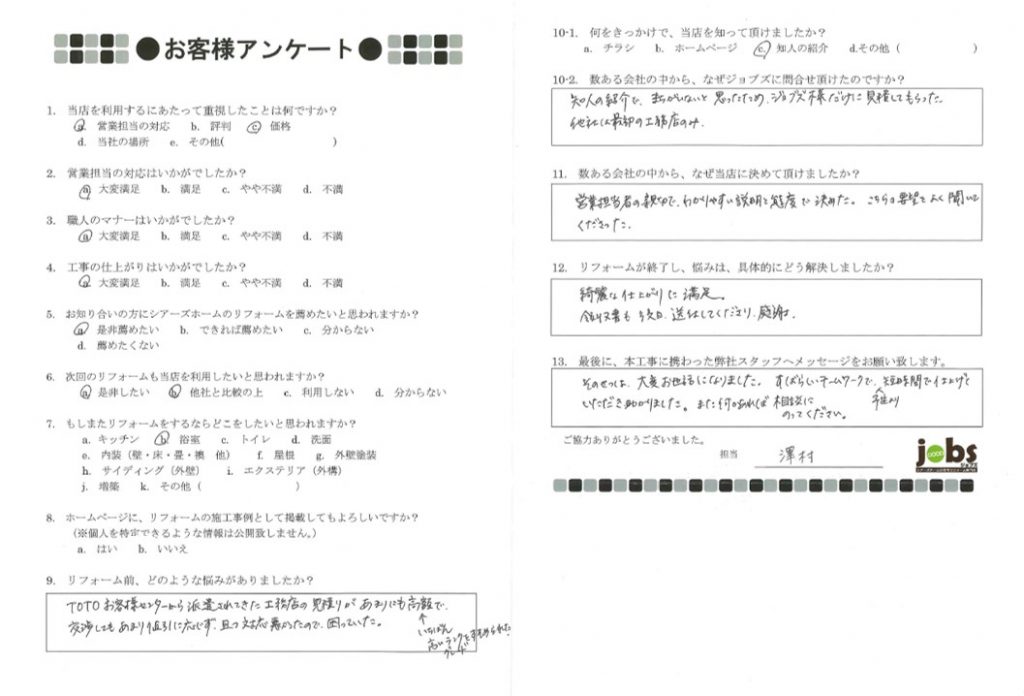 ●お客様アンケート●
1. 当店を利用するにあたって重視したことは何ですか？
a. 営業担当の対応 b. 評判 c. 価格
d. 当社の場所 e. その他( )
2. 営業担当の対応はいかがでしたか？
a. 大変満足 b. 満足 c. やや不満 d. 不満
3. 職人のマナーはいかがでしたか？
a. 大変満足 b. 満足 c. やや不満 d. 不満
4. 工事の仕上がりはいかがでしたか？
a. 大変満足 b. 満足 c. やや不満 d. 不満
5. お知り合いの方にシアーズホームのリフォームを薦めたいと思われますか？
a. 是非薦めたい b. できれば薦めたい c. 分からない
d. 薦めたくない
6. 次回のリフォームも当店を利用したいと思われますか？
a. 是非したい b. 他社と比較の上 c. 利用しない d. 分からない
7. もしまたリフォームをするならどこをしたいと思われますか？
a. キッチン b. 浴室 c. トイレ d. 洗面
e. 内装（壁・床・畳・襖 他） f. 屋根 g. 外壁塗装
h. サイディング（外壁） i. エクステリア（外構）
j. 増築 k. その他（ ）
8. ホームページに、リフォームの施工事例として掲載してもよろしいですか？
（※個人を特定できるような情報は公開致しません。）
a. はい b. いいえ
9. リフォーム前、どのような悩みがありましたか？
TOTOお客様センターから派遣されてきた工務店の見積りがあまりにも高額で、
交渉してもあまり値引に応じず、且つ対応悪かったので、困っていた。
↑
いちばん
高いランクをすすめられた
グレード
10-1. 何をきっかけで、当店を知って頂けましたか？
a. チラシ b. ホームページ c. 知人の紹介 d.その他（ ）
10-2. 数ある会社の中から、なぜジョブズに問合せ頂けたのですか？
知人の紹介で、まちがいないと思ったため、ジョブズ様だけに見積してもらった。
他社は最初の工務店のみ.
11. 数ある会社の中から、なぜ当店に決めて頂けましたか？
営業担当者の親切で、わかりやすい説明と態度で決めた。こちらの要望をよく聞いて
くださった.
12. リフォームが終了し、悩みは、具体的にどう解決しましたか？
綺麗な仕上がりに満足。
領収書も 送付してくださり、感謝.
13. 最後に、本工事に携わった弊社スタッフへメッセージをお願い致します。
そのせつは、大変お世話になりました。すばらしいチームワークで、短時間で仕上げて
予定より
いただき助かりました。また何かあれば相談に
のってください。
ご協力ありがとうございました。
担当 澤村
jobs
GOOD
ジョブズ